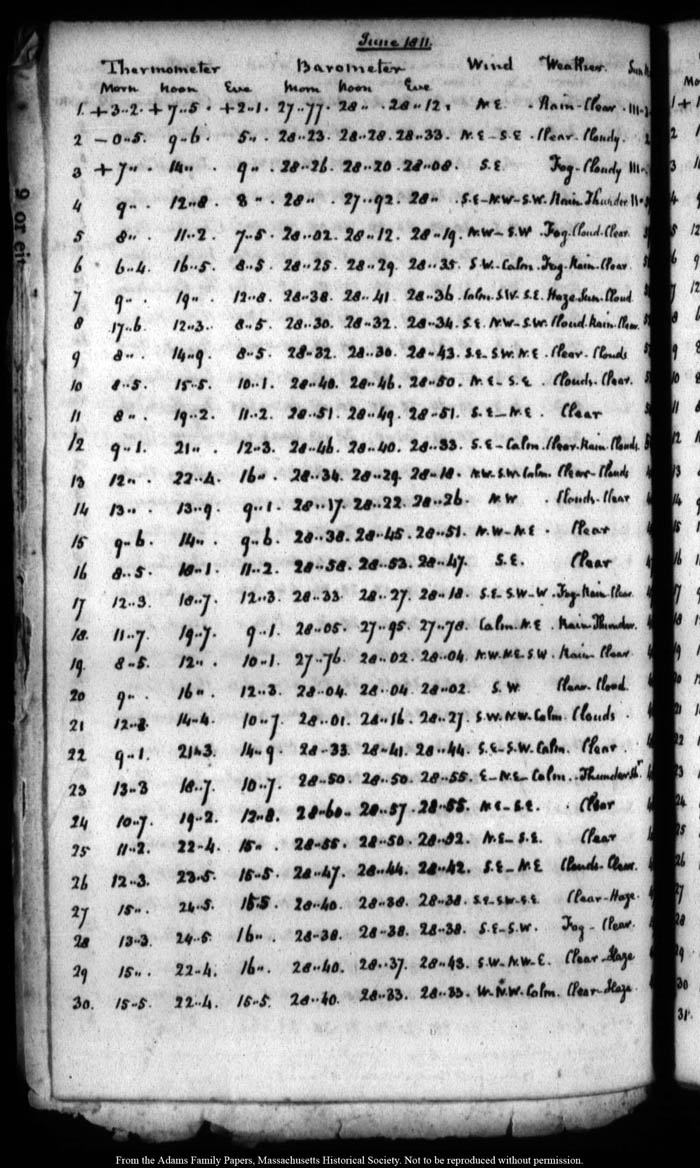 June 1811.
Thermometer Barometer Wind Weather.
Morn Noon Eve Morn Noon Eve
1. +3..2. +7..5. +2..1. 27..77. 28.. . 28..12. N.E. Rain-Clear.
2 -0..5. 9..6. 5.. . 28..23. 28..28. 28..33. N.E-S.E. Clear-Cloudy.
3 +7.. . 14.. . 9.. . 28..26. 28..20. 28..08. S.E. Fog-Cloudy
4 9.. . 12..8. 8.. . 28.. . 27..92. 28.. . S.E-N.W-S.W. Rain Thunder
5 8.. . 11..2. 7..5. 28..02. 28..12. 28..19. N.W-S.W. Fog-Cloud-Clear.
6 6..4. 16..5. 8..5. 28..25. 28..29. 28..35. S.W-Calm. Fog-Rain-Clear.
7 9.. . 19.. . 12..8. 28..38. 28..41. 28..36. Calm. S.W. S.E. Haze-Sun-Cloud.
8 17..6. 12..3. 8..5. 28..30. 28..32. 28..34. S.E. N.W-S.W. Cloud-Rain-Clear.
9 8.. . 14..9. 8..5. 28..32. 28..30. 28..43. S.E-S.W. N.E. Clear-Clouds
10 8..5. 15..5. 10..1. 28..40. 28..46. 28..50. N.E-S.E. Clouds-Clear.
11 8.. . 19..2. 11..2. 28..51. 28..49. 28..51. S.E-N.E. Clear
12 9..1. 21.. . 12..3. 28..46. 28..40. 28..33. S.E-Calm. Clear-Rain-Clouds.
13 12.. . 22..4. 16.. . 28..34. 28..29. 28..18. N.W. S.W. Calm. Clear-Clouds
14 13.. . 13..9. 9..1. 28..17. 28..22. 28..26. N.W. Clouds-Clear
15 9..6. 14.. . 9..6. 28..38. 28..45. 28..51. N.W-N.E. Clear
16 8..5. 18..1. 11..2. 28..58. 28..53. 28..47. S.E. Clear
17 12..3. 18..7. 12..3. 28..33. 28..27. 28..18. S.E-S.W-W. Fog-Rain-Clear.
18. 11..7. 19..7. 9..1. 28..05. 27..95. 27..78. Calm. N.E. Rain-Thunder.
19. 8..5. 12.. . 10..1. 27..76. 28..02. 28..04. N.W. N.E. S.W. Rain-Clear.
20 9.. . 16.. . 12..3. 28..04. 28..04. 28..02. S.W. Clear-Cloud.
21 12..8. 14..4. 10..7. 28..01. 28..16. 28..27. S.W. N.W. Calm. Clouds.
22 9..1. 21..3. 14..9. 28..33. 28..41. 28..44. S.E-S.W. Calm. Clear.
23 13..3 18..7. 10..7. 28..50. 28..50. 28..55. E-N.E-Calm. Thunder shr
24 10..7. 19..2. 12..8. 28..60. 28..57. 28..55. N.E-S.E. Clear
25 11..2. 22..4. 15.. . 28..55. 28..50. N.E-S.E. Clear
26 12..3. 23..5. 15..5. 28..47. 28..44. 28..42. S.E-N.E Clouds-Clear.
27 15.. . 24..5. 15.5. 28..40. 28..38. 28..38. S.E-S.W-S.E. Clear-Haze.
28 13..3. 24..5. 16.. . 28..38. 28..38. 28..38. S.E-S.W. Fog-Clear.
29 15.. . 22..4. 16.. . 28..40. 28..37. 28..43. S.W-N.W-E. Clear-Haze
30. 15..5. 22..4. 15..5. 28..40. 28..33. 28..33. W. N.W. Calm. Clear-Haze.
From the Adams Family Papers, Massachusetts Historical Society. Not to be reproduced without permission.